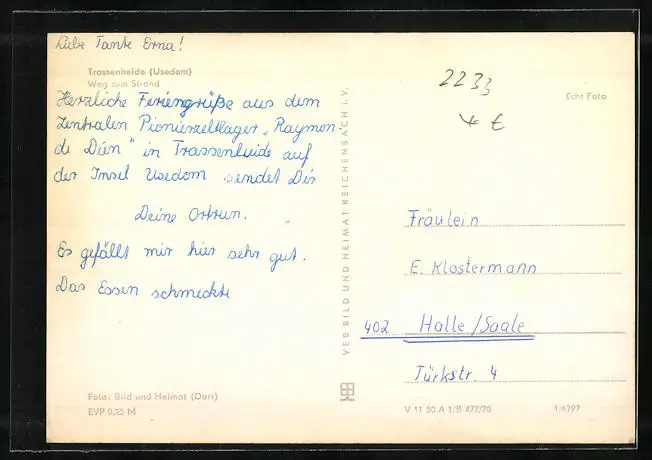 Liebe Tante Erna!
Trassenheide (Usedom)
Weg zum Strand
Herzliche Feriengrüße aus dem
Zentralen Pionierzeltlager „Raymon-
de Dien" in Trassenheide auf
der Insel Usedom sendet Dir
Deine Ortrun.
Es gefällt mir hier sehr gut.
Das Essen schmeckte
Foto: Bild und Heimat (Darr)
EVP 0,25 M
VEB BILD UND HEIMAT REICHENBACH i. V.
2233
4 €
Echt Foto
Fräulein
E. Klostermann
402 Halle/Saale
Türkstr. 4
V 11 50 A 1/B 477/70 1/6797